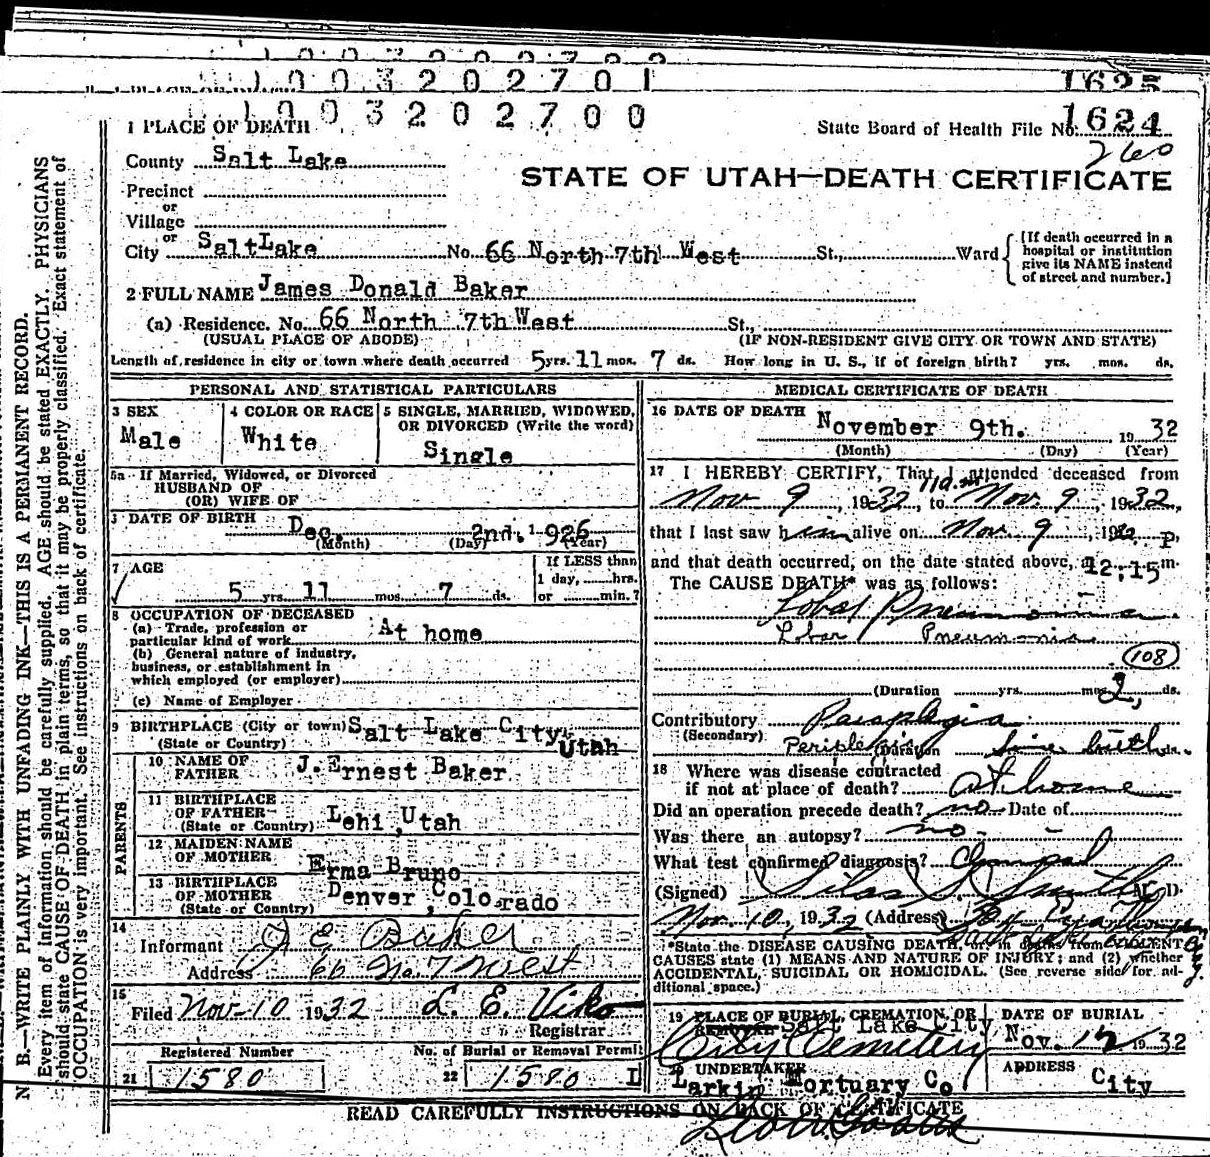 1003202701 1625
1003202700 1624
1 PLACE OF DEATH State Board of Health File No. 260
County Salt Lake
STATE OF UTAH—DEATH CERTIFICATE
Precinct
or
Village
or
City SaltLake No. 66 North 7th West St., Ward
[If death occurred in a
hospital or institution
give its NAME instead
of street and number.]
2 FULL NAME James Donald Baker
(a) Residence. No. 66 North 7th West St.,
(USUAL PLACE OF ABODE) (IF NON-RESIDENT GIVE CITY OR TOWN AND STATE)
Length of residence in city or town where death occurred 5 yrs. 11 mos. 7 ds. How long in U. S., if of foreign birth? yrs. mos. ds.
PERSONAL AND STATISTICAL PARTICULARS
3 SEX
Male
4 COLOR OR RACE
White
5 SINGLE, MARRIED, WIDOWED,
OR DIVORCED (Write the word)
Single
5a If Married, Widowed, or Divorced
HUSBAND OF
(OR) WIFE OF
DATE OF BIRTH Dec. 2nd. 1926
(Month) (Day) (Year)
7 AGE
5 yrs. 11 mos. 7 ds.
If LESS than
1 day, hrs.
or min.?
8 OCCUPATION OF DECEASED
(a) Trade, profession or
particular kind of work At home
(b) General nature of industry,
business, or establishment in
which employed (or employer)
(c) Name of Employer
9 BIRTHPLACE (City or town) Salt Lake City,
(State or Country) Utah
PARENTS
10 NAME OF
FATHER J. Ernest Baker
11 BIRTHPLACE
OF FATHER
(State or Country) Lehi, Utah
12 MAIDEN NAME
OF MOTHER Erma Bruno
13 BIRTHPLACE
OF MOTHER
(State or Country) Denver, Colorado
14
Informant J E Baker
Address 66 No. 7 West
15
Filed Nov-10 1932 L. E. Viko
Registrar
Registered Number No. of Burial or Removal Permit
21 1580 22 1580 L
MEDICAL CERTIFICATE OF DEATH
16 DATE OF DEATH November 9th. 1932
(Month) (Day) (Year)
17 I HEREBY CERTIFY, That I attended deceased from
Nov 9, 1932, to Nov 9, 1932,
that I last saw him alive on Nov 9, 19
and that death occurred, on the date stated above, at 12:15 P. m.
The CAUSE DEATH* was as follows:
Lobar Pneumonia
Lobar Pneumonia
108
(Duration yrs. mos. 2 ds.
Contributory Paraplegia
(Secondary)
(Duration since birth ds.
18 Where was disease contracted
if not at place of death? at home
Did an operation precede death? no Date of
Was there an autopsy? no
What test confirmed diagnosis?
(Signed) Silas S. Smith M. D.
Nov. 10, 1932 (Address)
*State the DISEASE CAUSING DEATH, or in deaths from VIOLENT
CAUSES state (1) MEANS AND NATURE OF INJURY; and (2) whether
ACCIDENTAL, SUICIDAL OR HOMICIDAL. (See reverse side for ad-
ditional space.)
19 PLACE OF BURIAL, CREMATION, OR
REMOVAL Salt Lake City
City Cemetery
DATE OF BURIAL
Nov. 12 1932
20 UNDERTAKER
Larkin Mortuary Co
ADDRESS
City
READ CAREFULLY INSTRUCTIONS ON BACK OF CERTIFICATE
N. B.—WRITE PLAINLY WITH UNFADING INK—THIS IS A PERMANENT RECORD.
Every item of information should be carefully supplied. AGE should be stated EXACTLY. PHYSICIANS
should state CAUSE OF DEATH in plain terms, so that it may be properly classified. Exact statement of
OCCUPATION is very important. See instructions on back of certificate.